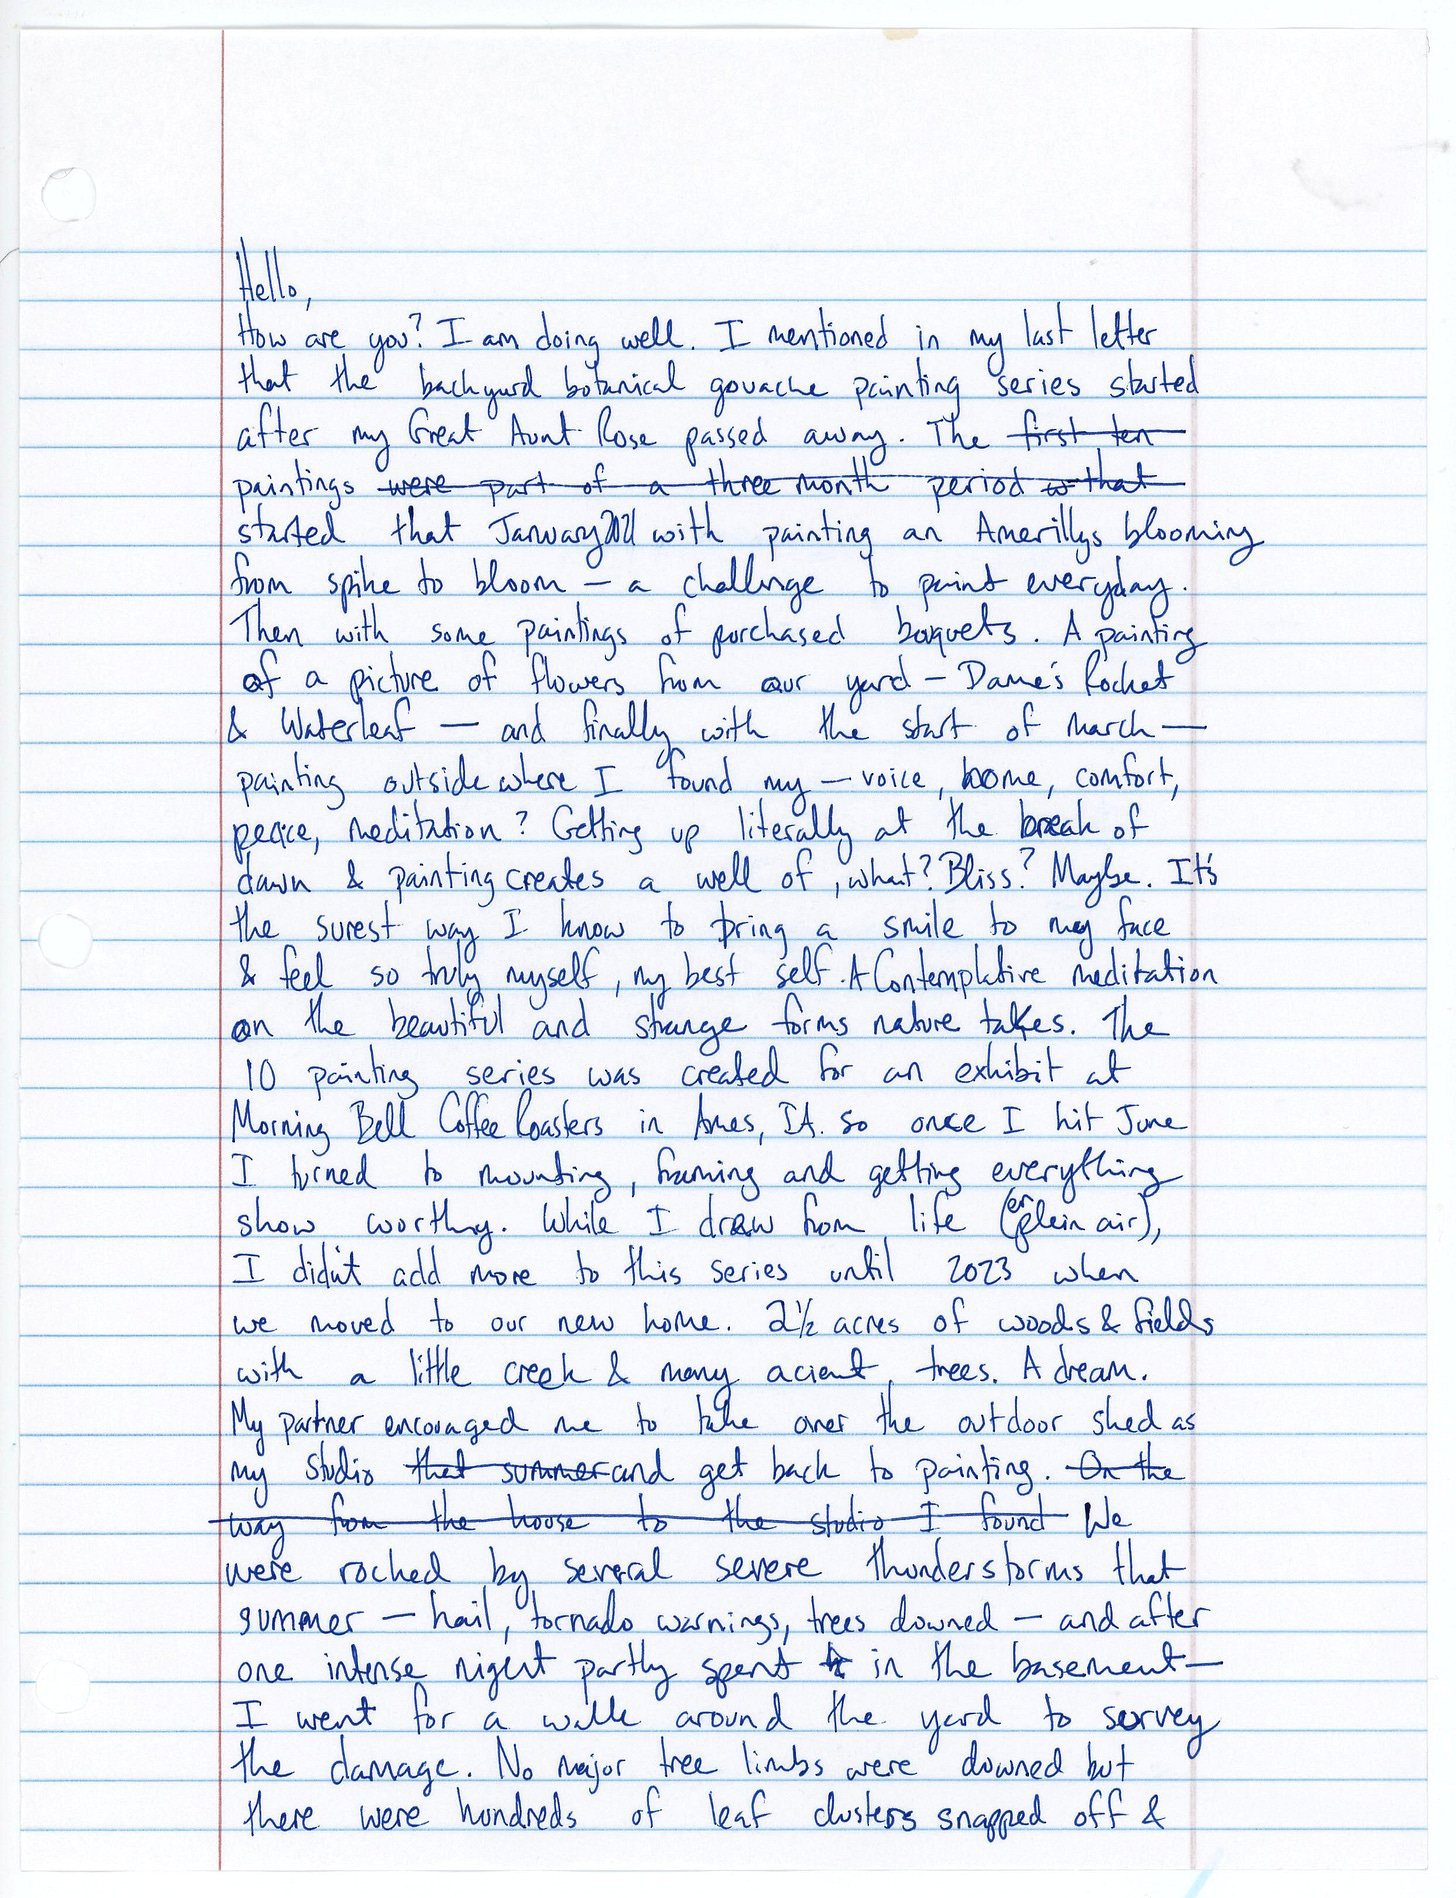 Hello,
How are you? I am doing well. I mentioned in my last letter
that the backyard botanical gouache painting series started
after my Great Aunt Rose passed away. The first ten
paintings were part of a three month period that
started that January 2021 with painting an Amerillys blooming
from spike to bloom — a challenge to paint everyday.
Then with some paintings of purchased boquets. A painting
of a picture of flowers from our yard — Dame's Rocket
& Waterleaf — and finally with the start of March —
painting outside where I found my — voice, home, comfort,
peace, meditation? Getting up literally at the break of
dawn & painting creates a well of, what? Bliss? Maybe. It's
the surest way I know to bring a smile to my face
& feel so truly myself, my best self. A Contemplative meditation
on the beautiful and strange forms nature takes. The
10 painting series was created for an exhibit at
Morning Bell Coffee Roasters in Ames, IA. So once I hit June
I turned to mounting, framing and getting everything
show worthy. While I draw from life (en plein air),
I didn't add more to this series until 2023 when
we moved to our new home. 2½ acres of woods & fields
with a little creek & many acient trees. A dream.
My partner encouraged me to take over the outdoor shed as
my studio that summer and get back to painting. On the
way from the house to the studio I found We
were rocked by several severe thunderstorms that
summer — hail, tornado warnings, trees downed — and after
one intense night partly spent in the basement —
I went for a walk around the yard to survey
the damage. No major tree limbs were downed but
there were hundreds of leaf clusters snapped off &